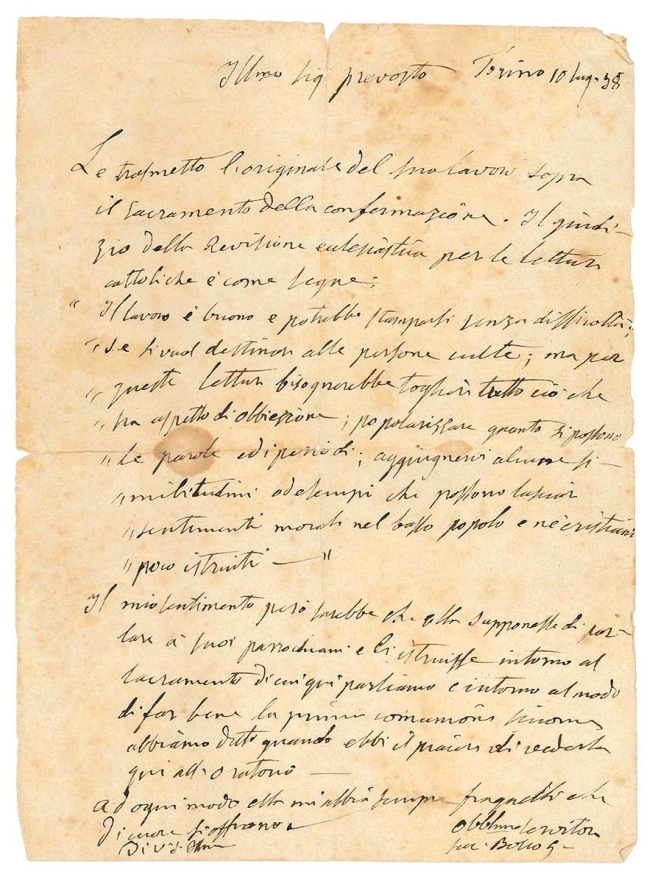 Ill.mo Sig prevosto Torino 10 lug. 58
Le trasmetto l'originale del suo lavoro sopra
il Sacramento della confermazione. Il giudi-
zio della Revisione ecclesiastica per le letture
cattoliche è come segue:
" Il lavoro è buono e potrebbe stamparsi senza difficoltà;
" se si vuol destinare alle persone culte; ma per
" queste letture bisognerebbe togliere tutto ciò che
" ha aspetto di obbiezione; popolarizzare quanto si possono
" le parole ed i periodi; aggiugnervi alcune si-
" militudini od esempi che possono lasciar
" sentimenti morali nel basso popolo e ne' cristiani
" poco istruiti — "
Il mio sentimento però sarebbe che ella supponesse di par-
lare a' suoi parrochiani e li istruisse intorno al
sacramento di cui qui parliamo e intorno al modo
di far bene la prima comunione siccome
abbiamo detto quando ebbi il piacere di vederla
qui all'oratorio —
Ad ogni modo ella mi abbia sempre fra quelli che
di cuore si offrono
Di V. S. Ill.ma
Obbl.mo servitore
Sac. Bosco G -